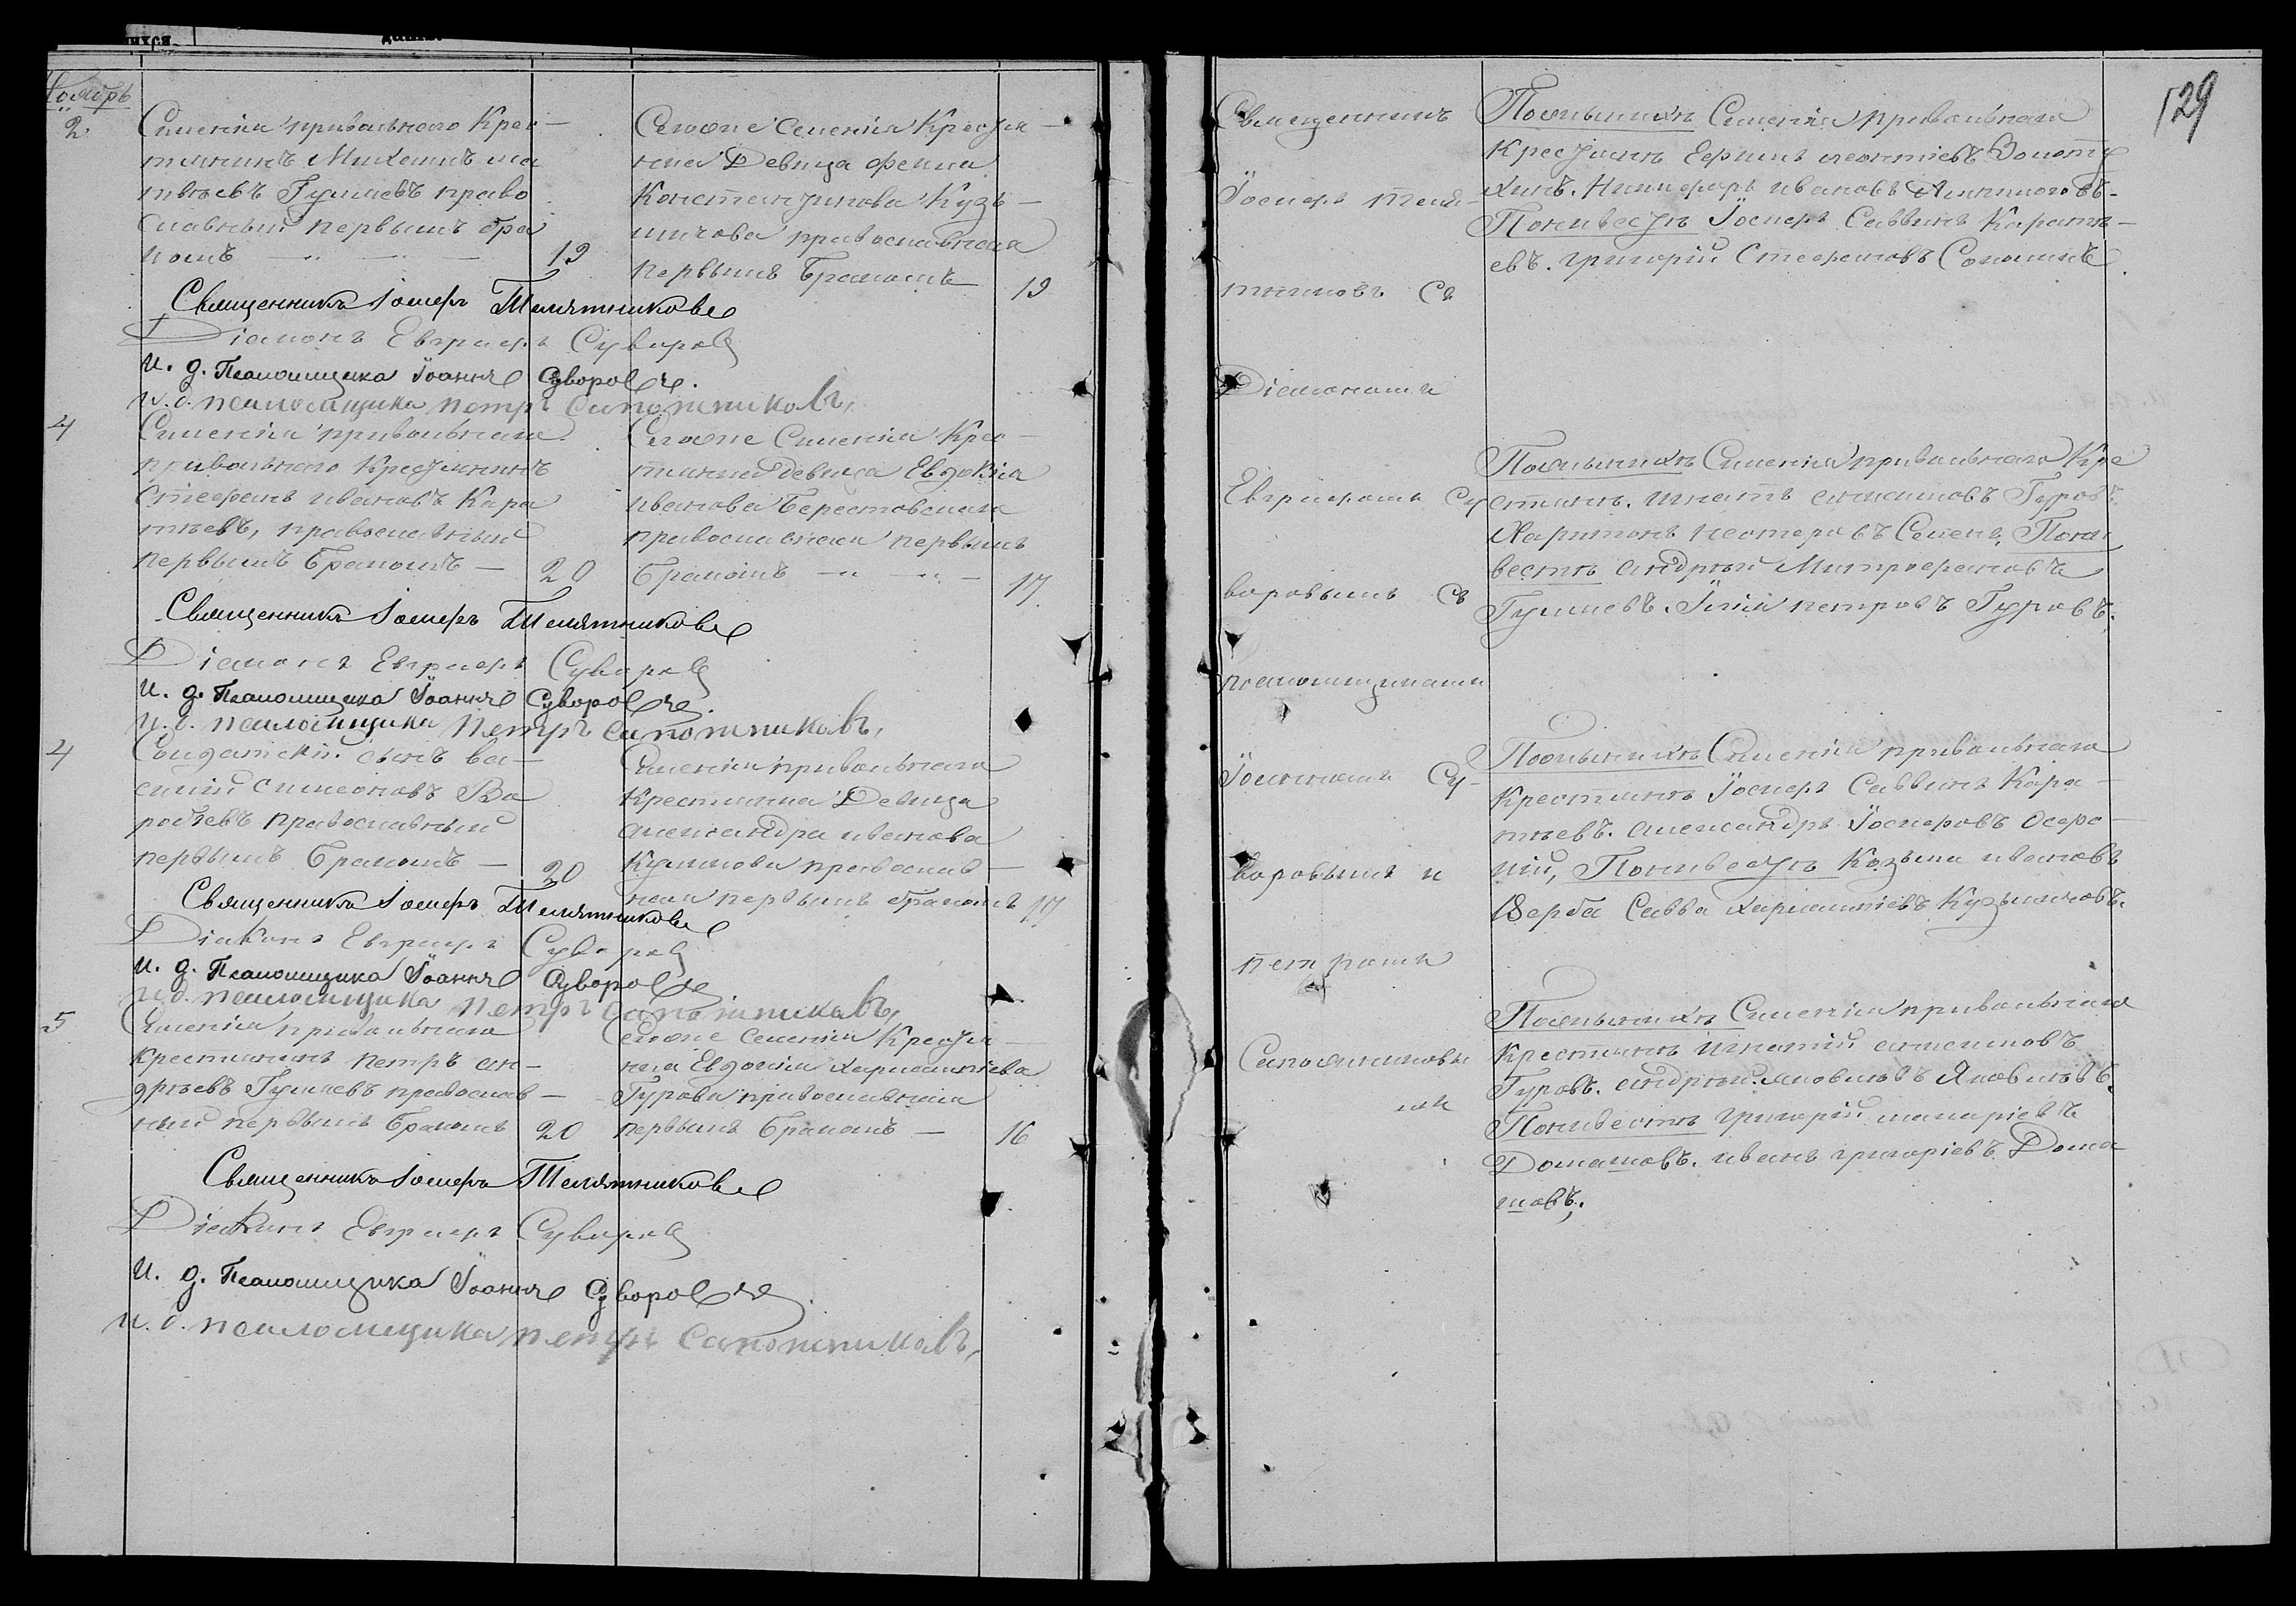 129
Ноябрь
2
Селенія привольнаго Крес-
тьянинъ Михаилъ Ма
твѣевъ Гуляевъ право
славный первымъ бра
комъ
19
Сегоже селенія Крестья-
ная Девица
Константинова Кузь-
мичова православная
первымъ бракомъ
19
Священникъ Іосифъ Телятниковъ
Діаконъ Евграфъ Суворовъ
И. д. Псаломщика Іоаннъ Суворовъ.
И. д. псаломщика Петръ Сапожниковъ,
4
Селенія привольнаго
привольнаго Крестьянинъ
Стефанъ Ивановъ Кара
тѣевъ, православный
первымъ бракомъ —
20
Сегоже Селенія Крес-
тьянская девица Евдокія
Иванова Берестовская
православная первымъ
бракомъ
17
Священникъ Іосифъ Телятниковъ
Діаконъ Евграфъ Суворовъ
И. д. Псаломщика Іоаннъ Суворовъ.
И. д. псаломщика Петръ Сапожниковъ,
4
Солдатскій сынъ Ва-
силій Симеоновъ
православный
первымъ бракомъ —
20
Селенія привольнаго
Крестьянка Девица
Александра Иванова
православ-
ная первымъ бракомъ
17
Священникъ Іосифъ Телятниковъ
Діаконъ Евграфъ Суворовъ
И. д. Псаломщика Іоаннъ Суворовъ
И. д. псаломщика Петръ Сапожниковъ,
5
Селенія привольнаго
крестьянинъ Петръ Ан-
дрѣевъ Гуляевъ православ-
ный первымъ бракомъ
20
Сегоже селенія Крестья-
ная Евдокія Харлампіева
Гурова православная
первымъ бракомъ —
16
Священникъ Іосифъ Телятниковъ
Діаконъ Евграфъ Суворовъ
И. д. Псаломщика Іоаннъ Суворовъ.
И. д. псаломщика Петръ Сапожниковъ,
Священникъ
Іосифъ Теля-
тниковъ Съ
Діакономъ
Евграфомъ Су
воровымъ Съ
псаломщиками
Іоанномъ Су-
воровымъ и
Петромъ
Сапожниковы
мъ
По женихѣ Селенія привольнаго
Крестьяне Леонтіевъ Золоту
хинъ. Никифоръ Ивановъ
По невестѣ Іосифъ Саввинъ Каратѣ-
евъ. Григорій Стефановъ
По женихѣ Селенія привольнаго Кре
стьяне. Гуровъ
Харитонъ Нестеровъ По не
вестѣ Андрей Митрофановъ
Гуляевъ. Петровъ Гуровъ.
По женихѣ Селенія привольнаго
Крестьяне Іосифъ Саввинъ Кара-
тѣевъ. Александръ Іосифовъ
По невестѣ Козьма Ивановъ
Верба Савва Харлампіевъ Кузьмичовъ.
По женихѣ Селенія привольнаго
Крестьяне Игнатій
Гуровъ. Андрей Яковлевъ Яковлевъ.
По невестѣ Григорій
Домашовъ. Иванъ Григоріевъ Дома
шовъ.